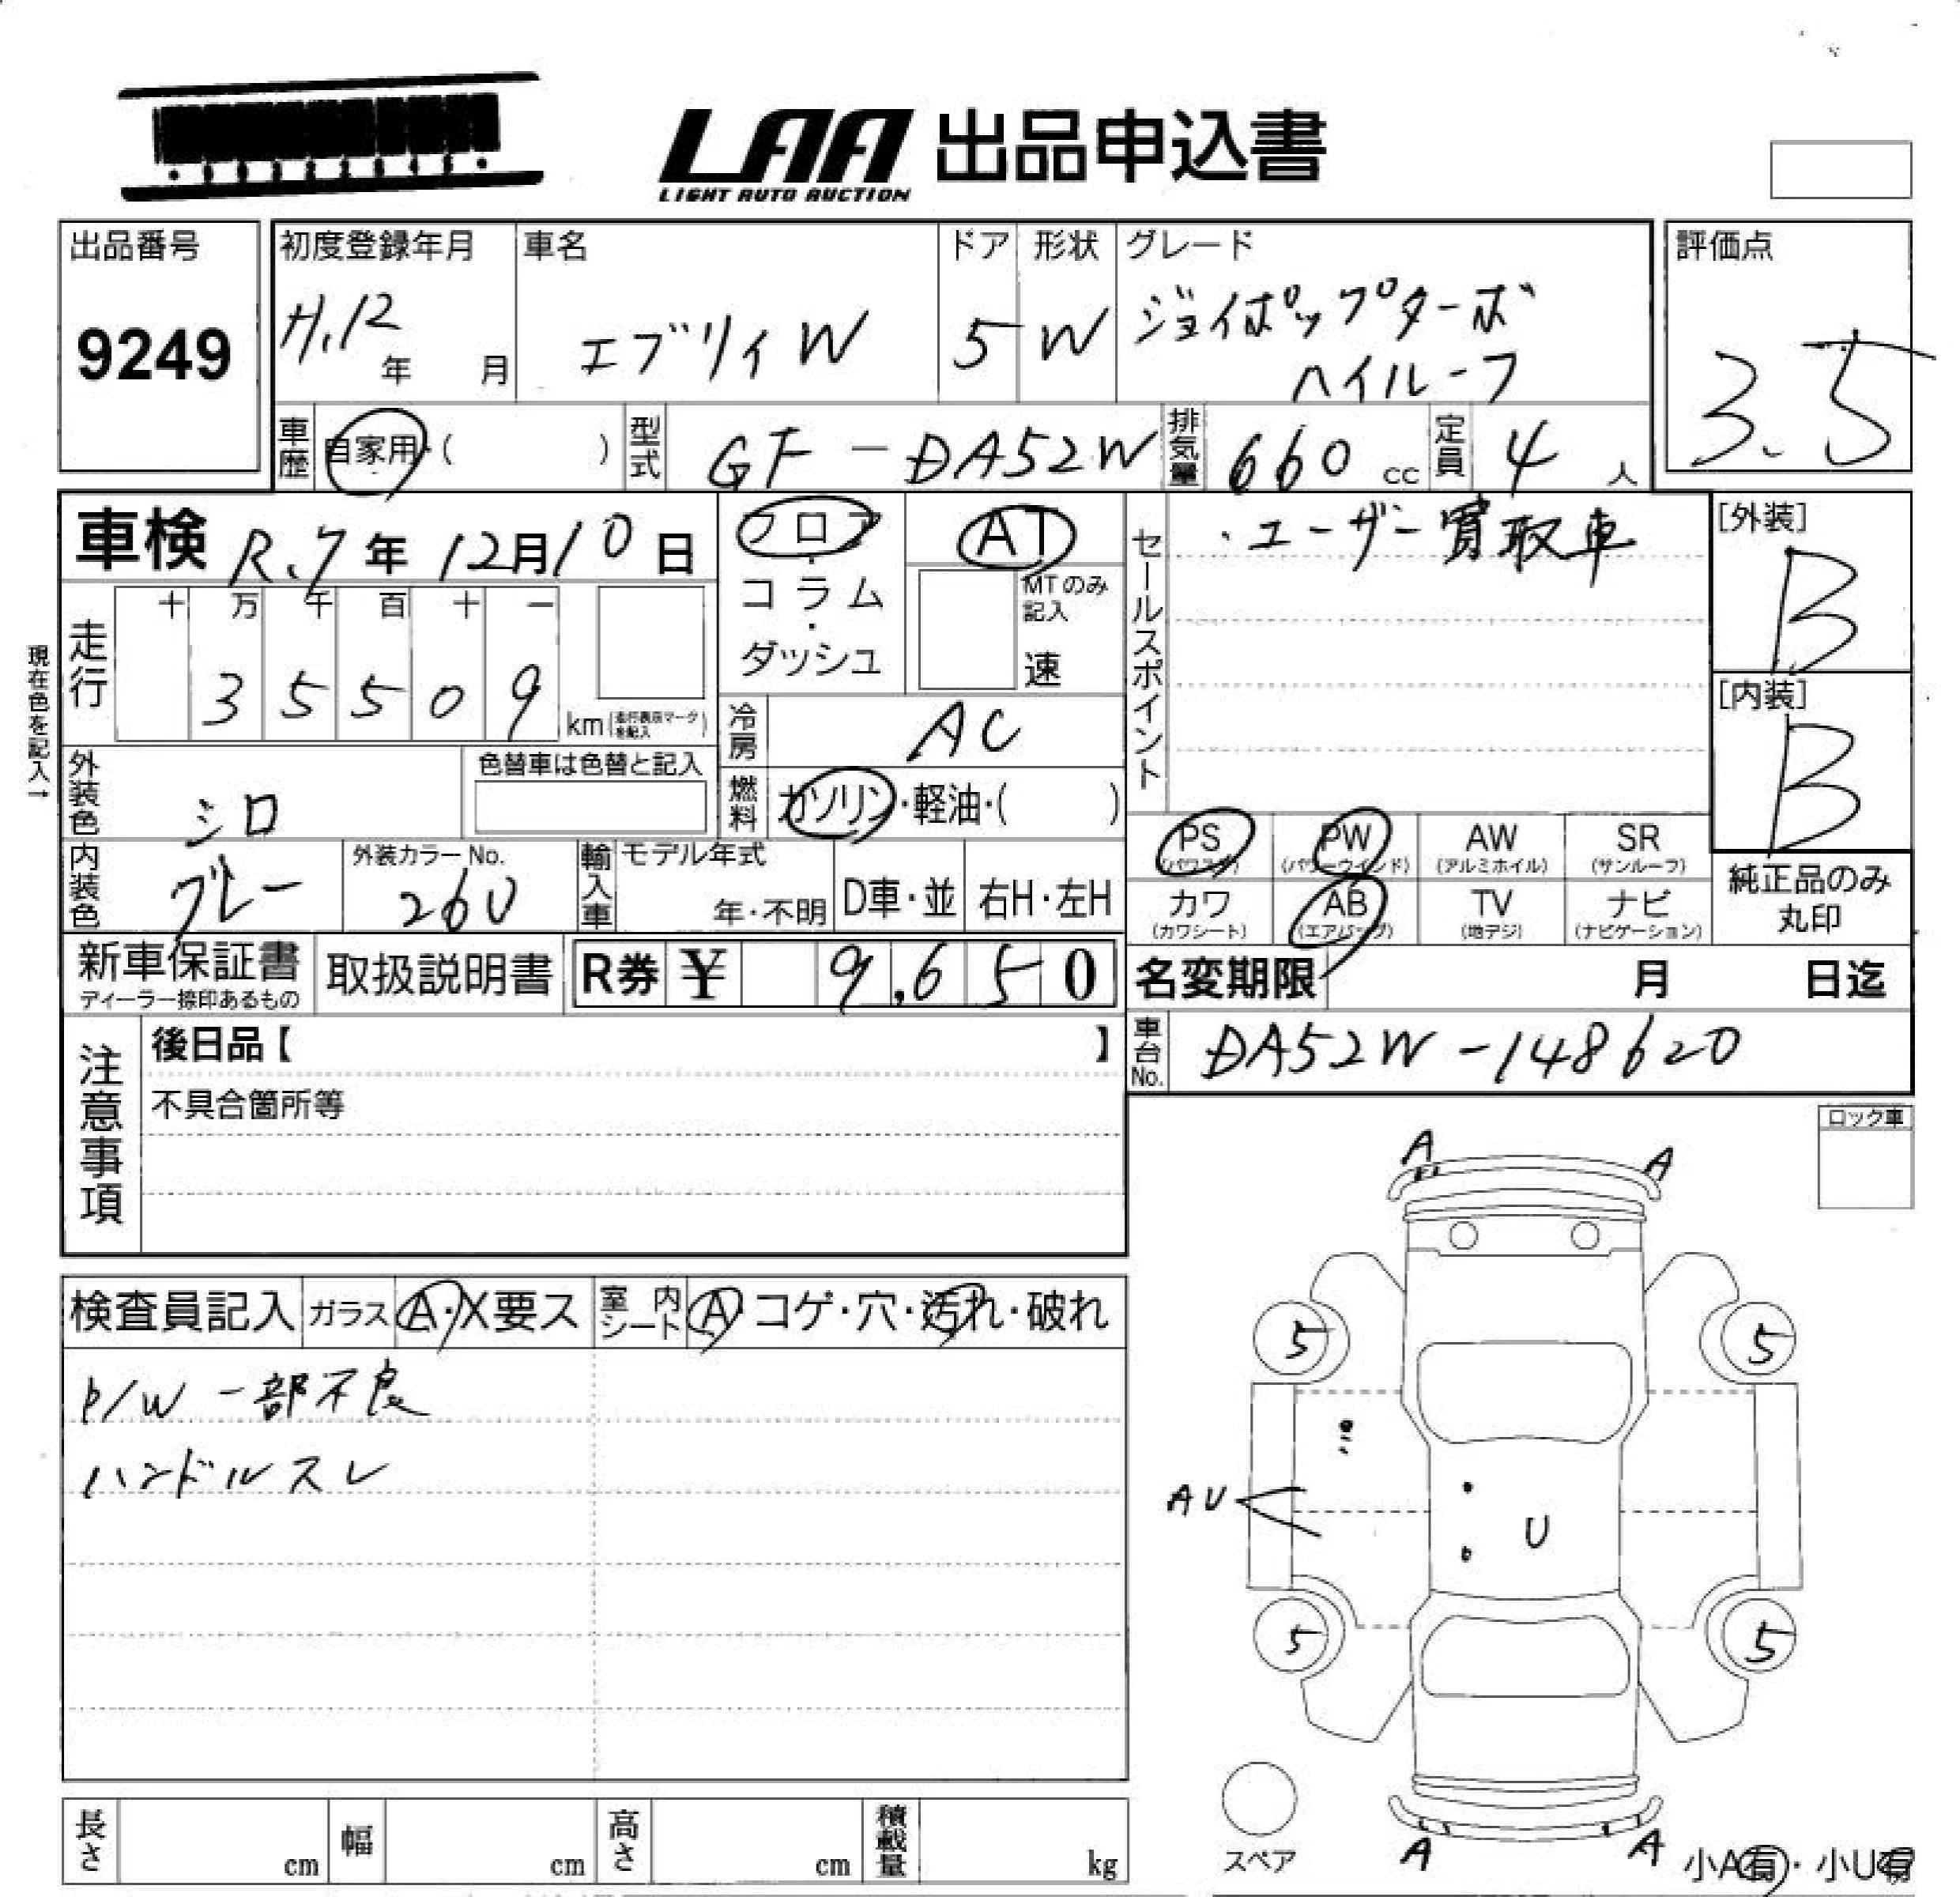 LAA 出品申込書
LIGHT AUTO AUCTION
出品番号
9249
初度登録年月
H.12年 月
車名
エブリイW
ドア
5
形状
W
グレード
ジョイポップターボ
ハイルーフ
評価点
3.5
車歴
自家用・( )
型式
GF-DA52W
排気量
660 cc
定員
4 人
車検 R.7年12月10日
フロア・コラム・ダッシュ
AT
MTのみ記入
速
セールスポイント
・ユーザー買取車
[外装]
B
[内装]
B
現在色を記入→
走行
十 万 千 百 十 一
3 5 5 0 9 km(走行表示マークを記入)
冷房
AC
外装色
シロ
色替車は色替と記入
燃料
ガソリン・軽油・( )
内装色
グレー
外装カラーNo.
26U
輸入車
モデル年式
年・不明
D車・並
右H・左H
PS (パワステ)
PW (パワーウインド)
AW (アルミホイル)
SR (サンルーフ)
カワ (カワシート)
AB (エアバッグ)
TV (地デジ)
ナビ (ナビゲーション)
純正品のみ丸印
新車保証書
ディーラー捺印あるもの
取扱説明書
R券 ¥ 9,650
名変期限 月 日迄
車台No.
DA52W-148620
注意事項
後日品【 】
不具合箇所等
ロック車
検査員記入
ガラス
A・X要ス
室内シート
A・コゲ・穴・汚れ・破れ
P/W 一部不良
ハンドルスレ
A A
5 5
AU
U
5 5
A A
スペア
小A有・小U有
長さ cm
幅 cm
高さ cm
積載量 kg